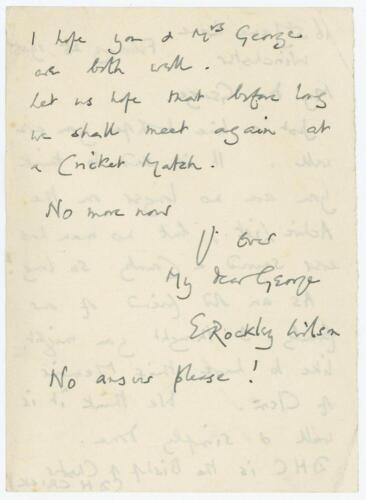 I hope you & Mrs George
are both well.
Let us hope that before long
we shall meet again at
a Cricket Match.
No more now
Yr ever
My dear George
E Rockley Wilson
No answer please!